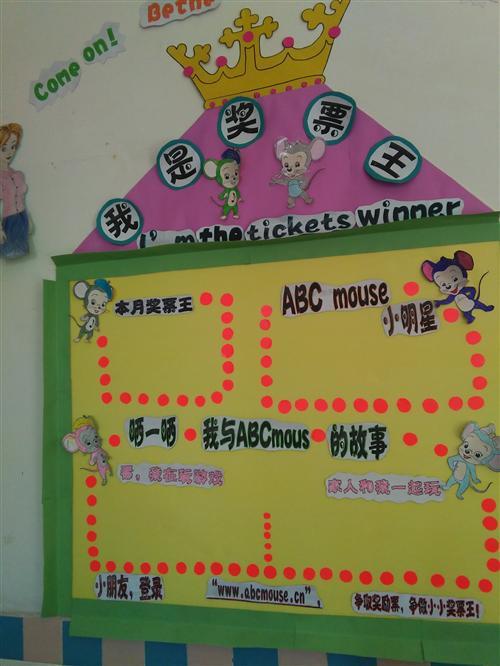 Come on!
Bethe
我是奖票王
I'm the tickets winner
本月奖票王
ABC mouse
小明星
晒一晒 我与ABCmous 的故事
看，我在玩游戏
家人和我一起玩
小朋友，登录
“www.abcmouse.cn”，
争取奖励票，争做小小奖票王！